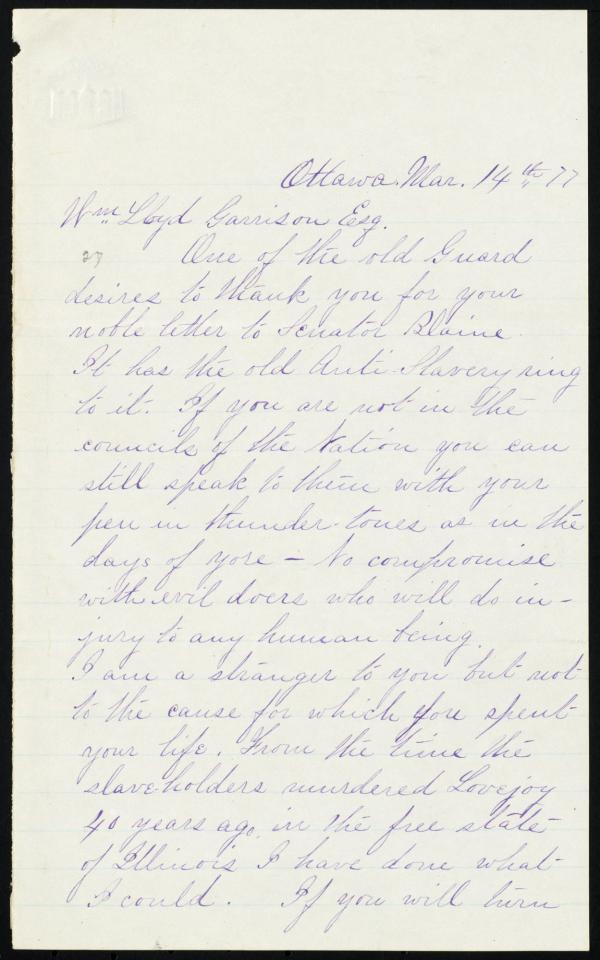 Ottawa Mar. 14th 77
Wm Lloyd Garrison Esq.
27 One of the old Guard
desires to thank you for your
noble letter to Senator Blaine
It has the old Anti-Slavery ring
to it. If you are not in the
councils of the Nation you can
still speak to them with your
pen in thunder-tones as in the
days of yore – No compromise
with evil doers who will do in-
jury to any human being.
I am a stranger to you but not
to the cause for which you spent
your life. From the time the
slaveholders murdered Lovejoy
40 years ago in the free state
of Illinois I have done what
I could. If you will turn